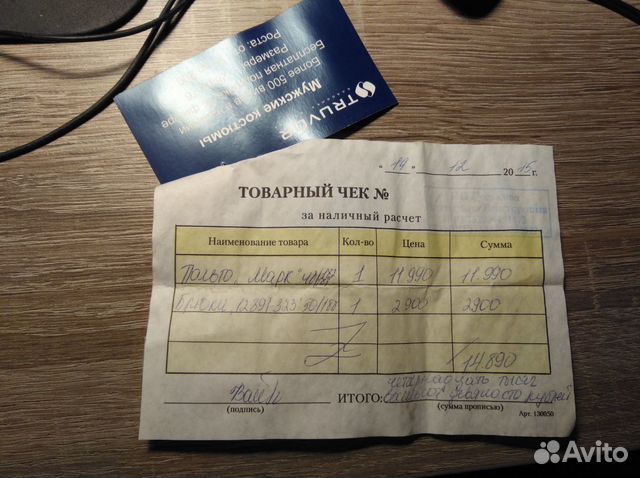 TRUVOR
Мужские костюмы
Более 500
Бесплатная
Размеры
Роста: от
"14" 12 2015 г.
ТОВАРНЫЙ ЧЕК №
за наличный расчет
Наименование товара Кол-во Цена Сумма
Пальто "Марк" 1 11.990 11.990
Брюки 50/188 1 2900 2900
14.890
ИТОГО: четырнадцать тысяч
восемьсот девяносто рублей
(подпись) (сумма прописью)
Арт. 130050
Avito